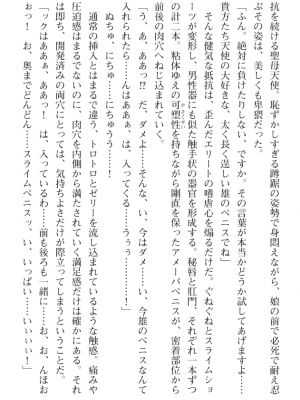 抗を続ける聖母天使。恥ずかしすぎる蹲踞の姿勢で身悶えながら、娘の前で必死で耐え忍
ぶその姿は、美しくも卑猥だった。
「ふん。絶対に負けたりしない、ですか。その言葉が本当かどうか試してあげますよ……
貴方たち天使の大好きな、太く長く逞しい雄のペニスでね」
そんな健気な抵抗は、歪んだエリートの嗜虐心を煽るだけだ。ぐねぐねとスライムショ
ーツが変形し、男性器にも似た触手状の器官を形成する。秘唇と肛門、それぞれ一本ずつ
の計二本。粘体ゆえの可塑性を持ちながら剛直を保ったアメーバペニスが、密着部位から
前後の肉穴へねじ込まれていく。
「う、あ、ああっ!? だ、ダメよ……そんな、い、今はダメ……い、今雄のペニスなんて
入れられたら……んはあぁぁ、は、入ってくる……うぅぅ………!」
ぬちゅ、にちゅ……にちゅうう……!
通常の挿入とはまるで違う、トロトロとゼリーを流し込まれているような触感。痛みや
圧迫感はまるでないのに、肉穴を内側から満たされていく満足感だけは確かにある。それ
は即ち、開発済みの両穴にとっては、気持ちよさだけが際立ってしまうということだ。
「ックはあぁぁ、ああっ! は、入っているわ……前も後ろも一緒に……お、お、んほお
ぉっ! お、奥までどんどん……スライムペニスッ、い、いっぱい……いいぃぃ!」